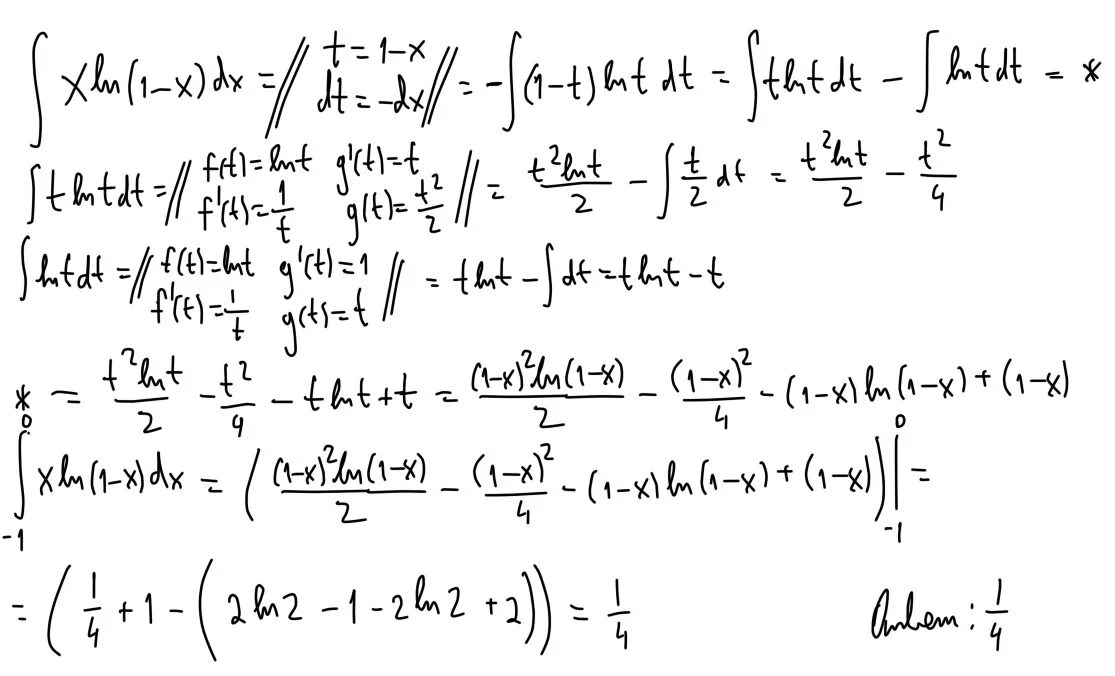 ∫ x ln(1-x) dx = // t = 1-x dt = -dx // = -∫ (1-t) ln t dt = ∫ t ln t dt - ∫ ln t dt = *
∫ t ln t dt = // f(t) = ln t g'(t) = t f'(t) = 1/t g(t) = t²/2 // = t² ln t/2 - ∫ t/2 dt = t² ln t/2 - t²/4
∫ ln t dt = // f(t) = ln t g'(t) = 1 f'(t) = 1/t g(t) = t // = t ln t - ∫ dt = t ln t - t
* = t² ln t/2 - t²/4 - t ln t + t = (1-x)² ln(1-x)/2 - (1-x)²/4 - (1-x) ln(1-x) + (1-x)
∫₋₁⁰ x ln(1-x) dx = ((1-x)² ln(1-x)/2 - (1-x)²/4 - (1-x) ln(1-x) + (1-x)) |₋₁⁰ =
= (1/4 + 1 - (2 ln 2 - 1 - 2 ln 2 + 2)) = 1/4 Ответ: 1/4